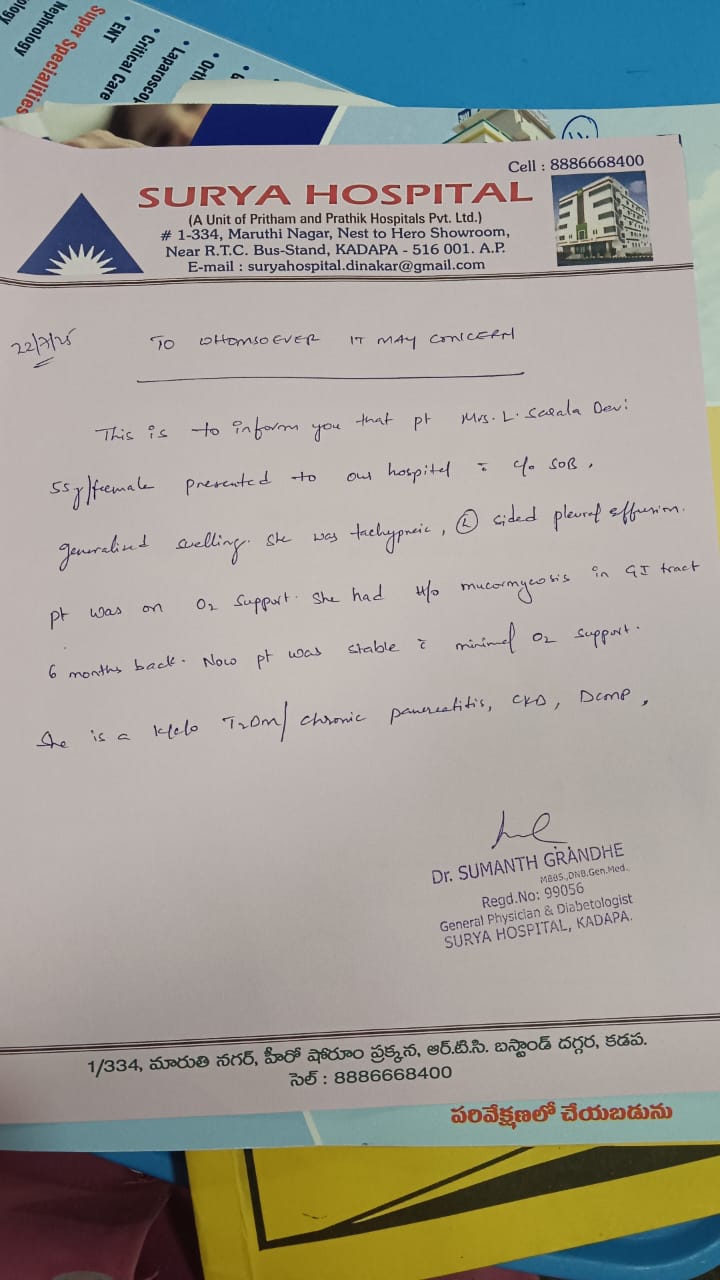 ology
Nephrology
Super Specialities
• ENT
• Critical Care
• Laparoscop
• Orth
Cell : 8886668400
SURYA HOSPITAL
(A Unit of Pritham and Prathik Hospitals Pvt. Ltd.)
# 1-334, Maruthi Nagar, Nest to Hero Showroom,
Near R.T.C. Bus-Stand, KADAPA - 516 001. A.P.
E-mail : suryahospital.dinakar@gmail.com
22/7/25
TO WHOMSOEVER IT MAY CONCERN
This is to inform you that pt Mrs. L. Sarala Devi
55y/female presented to our hospital c̄ c/o SOB,
generalised swelling. She was tachypneic, Ⓛ sided pleural effusion.
pt was on O2 support. She had H/o mucormycosis in GI tract
6 months back. Now pt was stable c̄ minimal O2 support.
She is a K/c/o T2DM/ chronic pancreatitis, CKD, DCMP,
Dr. SUMANTH GRANDHE
MBBS.,DNB.Gen.Med.,
Regd.No: 99056
General Physician & Diabetologist
SURYA HOSPITAL, KADAPA.
1/334, మారుతి నగర్, హీరో షోరూం ప్రక్కన, ఆర్.టి.సి. బస్టాండ్ దగ్గర, కడప.
సెల్ : 8886668400
పరివేక్షణలో చేయబడును